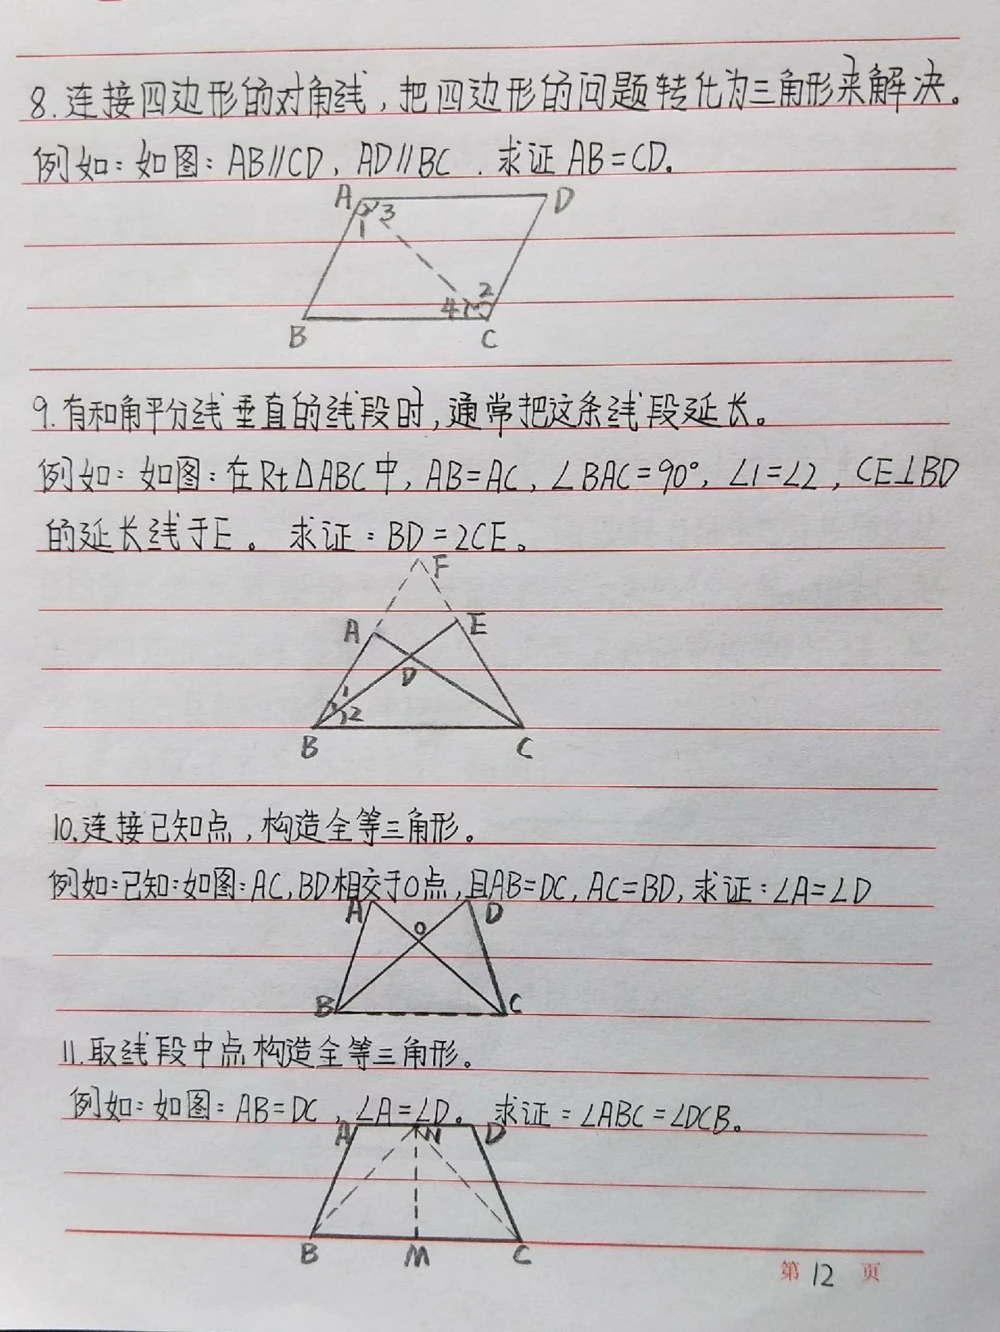 8.连接四边形的对角线,把四边形的问题转化为三角形来解决。
例如:如图:AB//CD、AD//BC.求证AB=CD。
A D
3
1
2
4
B C
9.有和角平分线垂直的线段时,通常把这条线段延长。
例如:如图:在Rt△ABC中,AB=AC,∠BAC=90°,∠1=∠2,CE⊥BD
的延长线于E。求证:BD=2CE。
F
A E
D
1
2
B C
10.连接已知点,构造全等三角形。
例如:已知:如图:AC,BD相交于O点,且AB=DC,AC=BD,求证:∠A=∠D
A D
O
B C
11.取线段中点构造全等三角形。
例如:如图:AB=DC,∠A=∠D。求证:∠ABC=∠DCB。
A N D
B M C
第12页